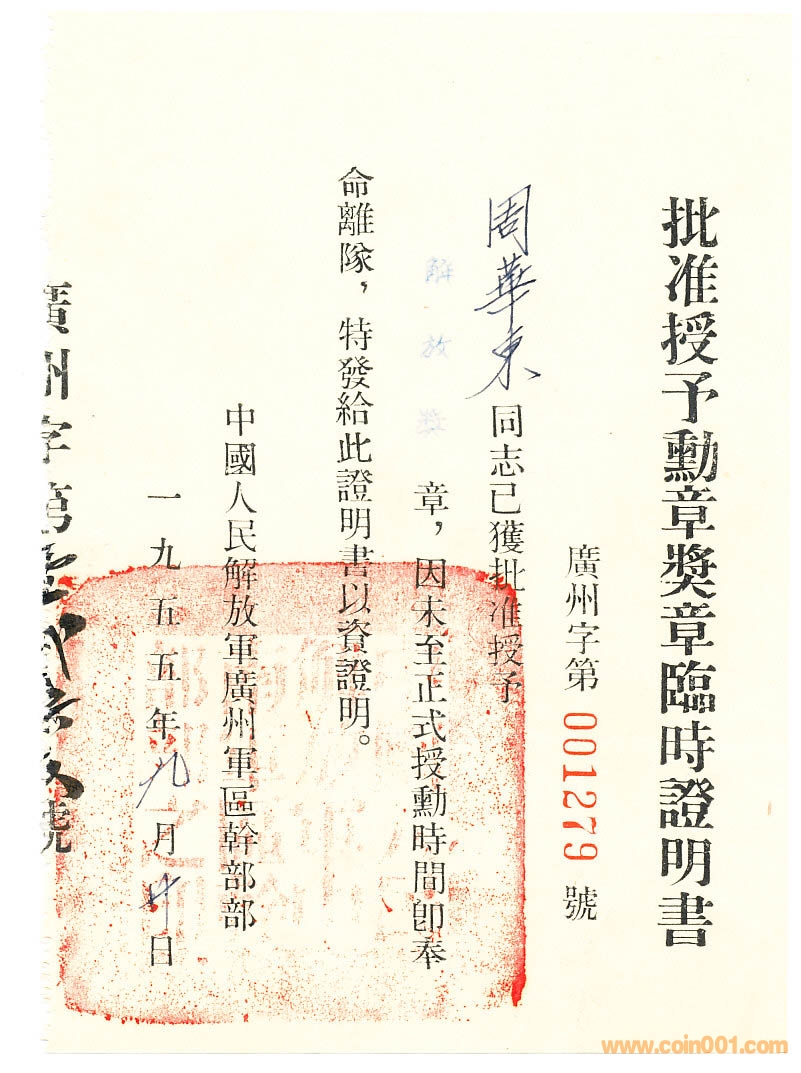 批准授予勳章獎章臨時證明書
廣州字第 001279 號
周華東同志已獲批准授予
解放獎章，因未至正式授勳時間卽奉
命離隊，特發給此證明書以資證明。
中國人民解放軍廣州軍區幹部部
一九五五年九月廿日
廣州字第號
www.coin001.com